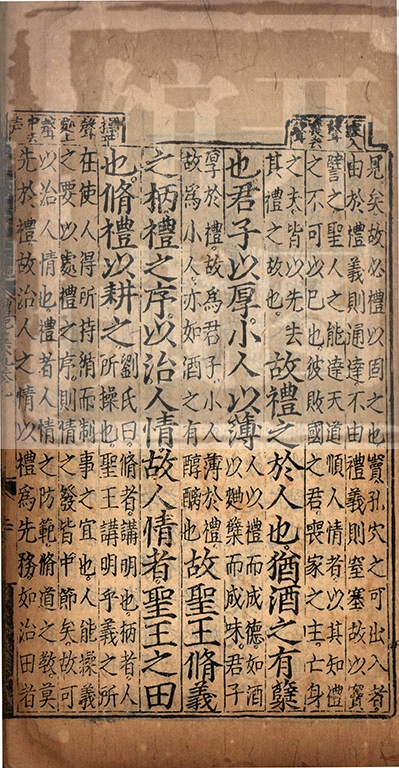 見矣故必禮以固之也竇孔穴之可出入者
由於禮義則通達不由禮義則窒塞故以竇
譬之聖人之能達天道順人情者以其知禮
之不可以已也彼敗國之君喪家之主亡身
之夫皆以先去
其禮之故也
故禮之於人也猶酒之有糵
也君子以厚小人以薄
人以禮而成德如酒
以麯糵而成味君子
厚於禮故爲君子小人薄於禮
故爲小人亦如酒之有醇醨也
故聖王脩義
之柄禮之序以治人情故人情者聖王之田
也脩禮以耕之
劉氏曰脩者講明也柄者人
所操也聖王講明乎義之所
在使人得所持循而制事之宜也人能操義
之要以處禮之序則情之發皆中節矣故可
以治人情也禮者人情之防範脩道之教莫
先於禮故治人之情以禮爲先務如治田者